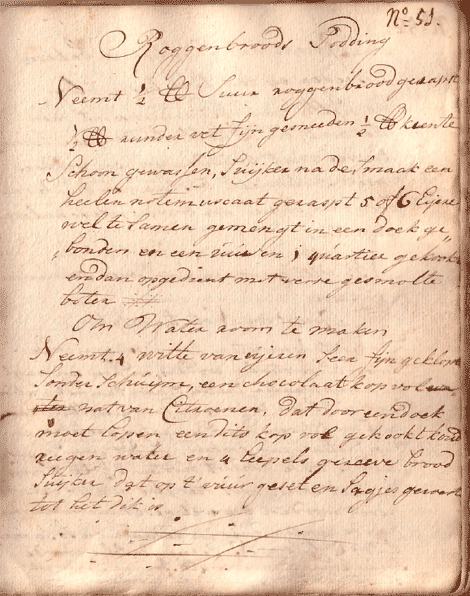 No. 51.
Roggenbroods Podding
Neemt ½ ℔ Suur roggenbrood geraspt
½ ℔ runder vet fijn gesneeden ½ ℔ krente
Schoon gewassen, Suijker na de smaak een
heelen notemuscaat geraspt 5 of 6 Eijere
wel te Samen gemengt in een doek ge
bonden en een uur en 1 quartier gekookt
en dan opgedient met verse gesmolte
boter
Om Water room te maken
Neemt 4 witte van eijeren Seer fijn geklopt
Sonder Schuijm, een chocolaat kop vol
nat van Citroenen, dat door een doek
moet lopen een dito kop vol gekookt koud
reegen water en 4 leepels gereeve brood
Suijker dat op t vuur geset en Sagjes geroert
tot het dik is